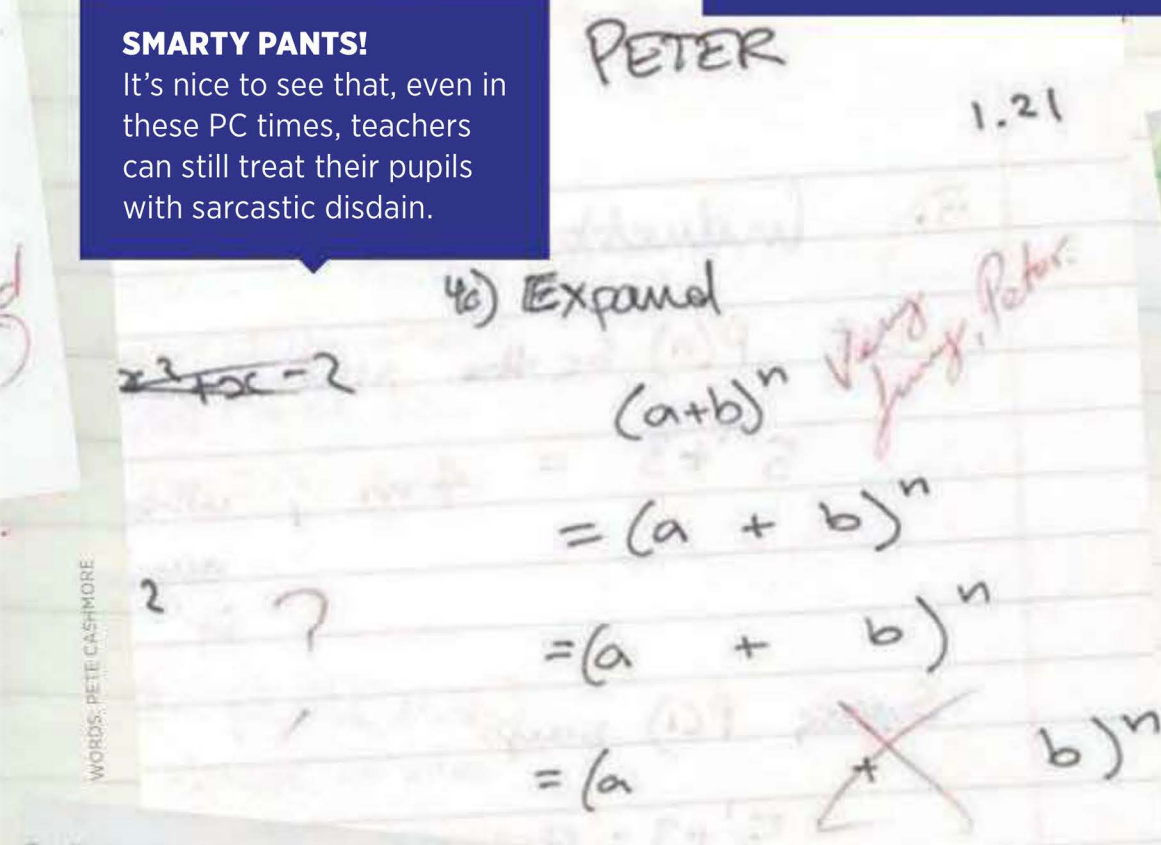 SMARTY PANTS!
It's nice to see that, even in
these PC times, teachers
can still treat their pupils
with sarcastic disdain.
PETER
1.21
4c) Expand
Very
funny, Peter.
x²+x-2
(a+b)ⁿ
= (a + b)ⁿ
2 ?
=(a + b)ⁿ
= (a + b)ⁿ
WORDS: PETE CASHMORE